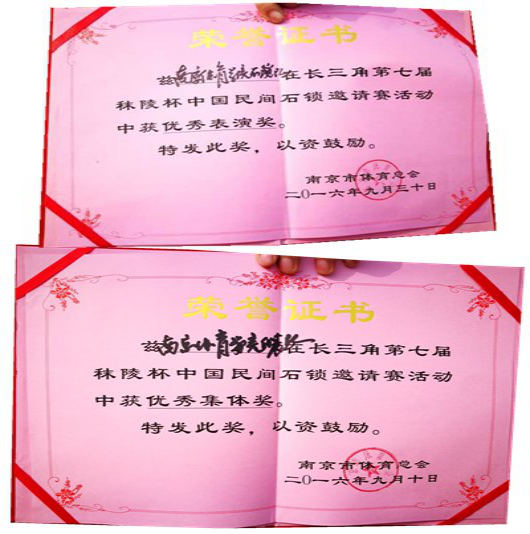 荣誉证书
兹南京体育学院石锁队在长三角第七届
秣陵杯中国民间石锁邀请赛活动
中获优秀表演奖。
特发此奖，以资鼓励。
南京市体育总会
二〇一六年九月三十日
荣誉证书
兹南京体育学院在长三角第七届
秣陵杯中国民间石锁邀请赛活动
中获优秀集体奖。
特发此奖，以资鼓励。
南京市体育总会
二〇一六年九月十日